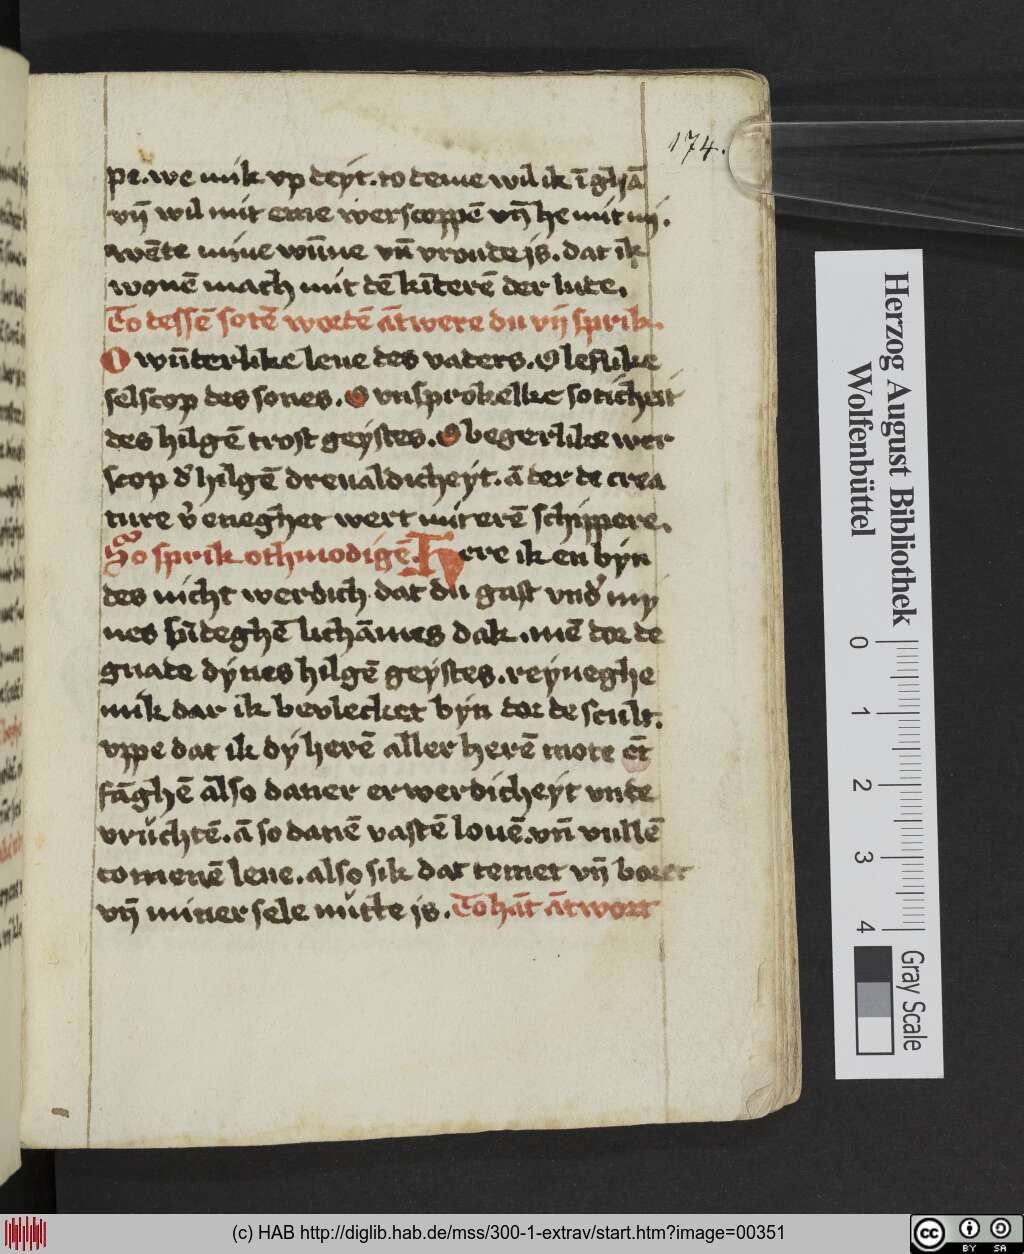 174.
pe. we mik vp deyt. to deme wil ik ī ghā
vn̄ wil mit eme werscoppē vn̄ he mit my.
wēte mine wūne vn̄ vroude is. dat ik
wonē mach mit dē kīderē der lude.
To dessē sotē wordē ātwere du vn̄ sprik.
O wūderlike leue des vaders. O lefflike
selscop des sones. O vnsprokelke soticheit
des hilgē trost geystes. O begerlike wer
scop d' hilgē dreualdicheyt. ā der de crea
ture v'eneghet wert mit erē schippere.
So sprik othmodigē. Here ik en byn
des nicht werdich dat du gast vnd' my
nes sūdeghē lichāmes dak. mē dor de
gnade dynes hilgē geystes. reyneghe
mik dar ik bevlecket byn dor de scult.
vppe dat ik dy herē aller herē mote ēt
fāghē also daner erwerdicheyt vnde
vruchtē. ā so danē vastē louē. vn̄ vullē
comenē leue. also sik dat temet vn̄ boret
vn̄ miner sele nutte is. To hāt ātwort
Herzog August Bibliothek
Wolfenbüttel
0 1 2 3 4
Gray Scale
(c) HAB http://diglib.hab.de/mss/300-1-extrav/start.htm?image=00351
cc BY SA